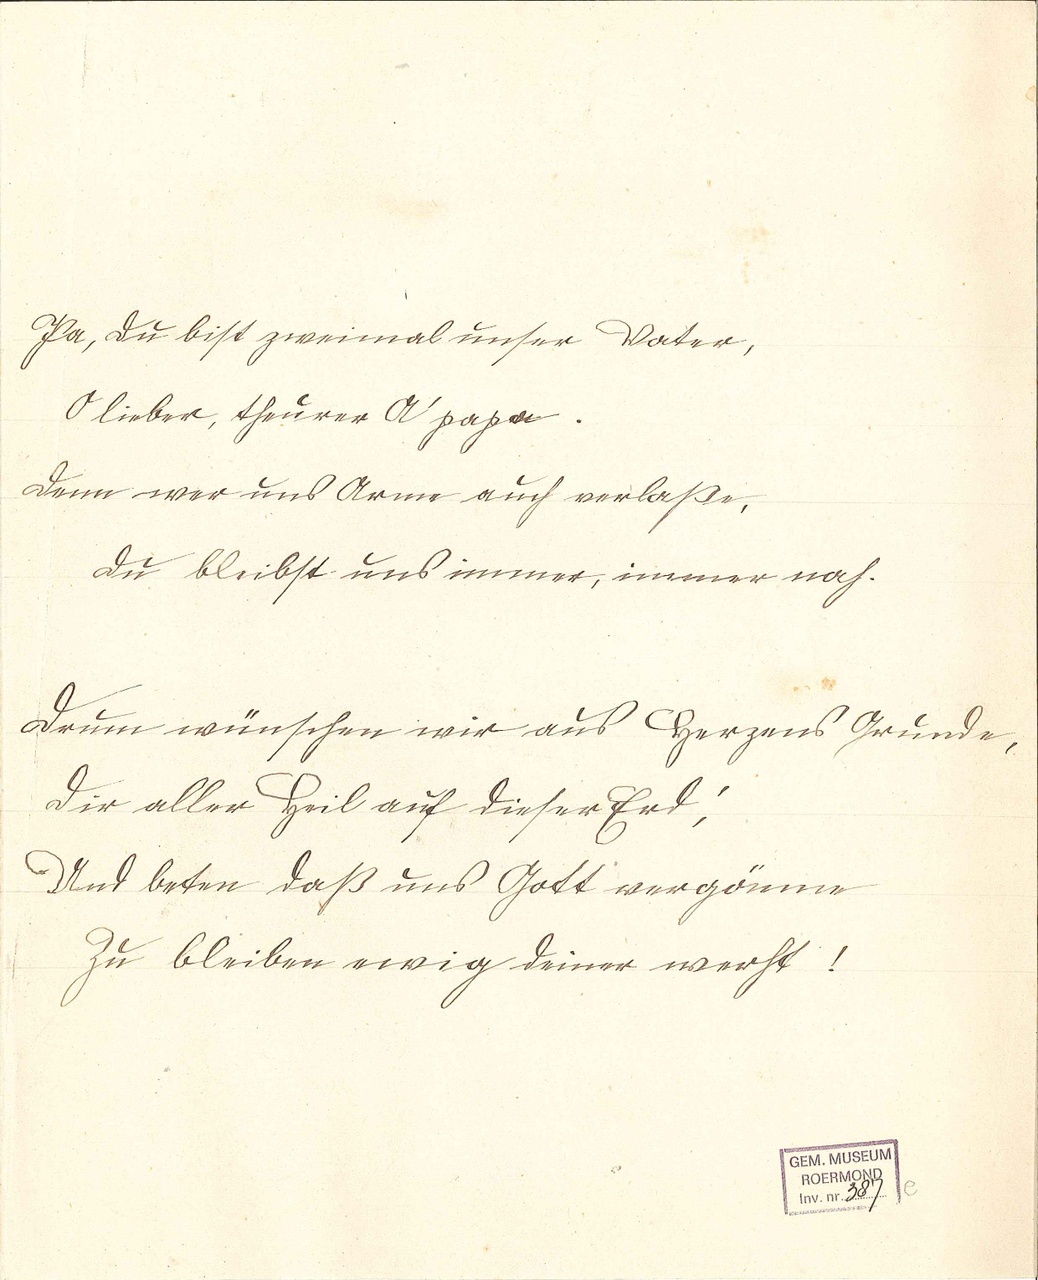 Pa, du bist zweimal unser Vater,
O lieber, theurer A'papa.
Denn wer uns Arme auch verlaße,
du bleibst uns immer, immer nah.
Drum wünschen wir aus Herzens Grunde,
Dir aller Heil auf dieser Erd',
Und beten daß uns Gott vergönne
Zu bleiben ewig deiner werht!
GEM. MUSEUM
ROERMOND
Inv. nr. 387 c